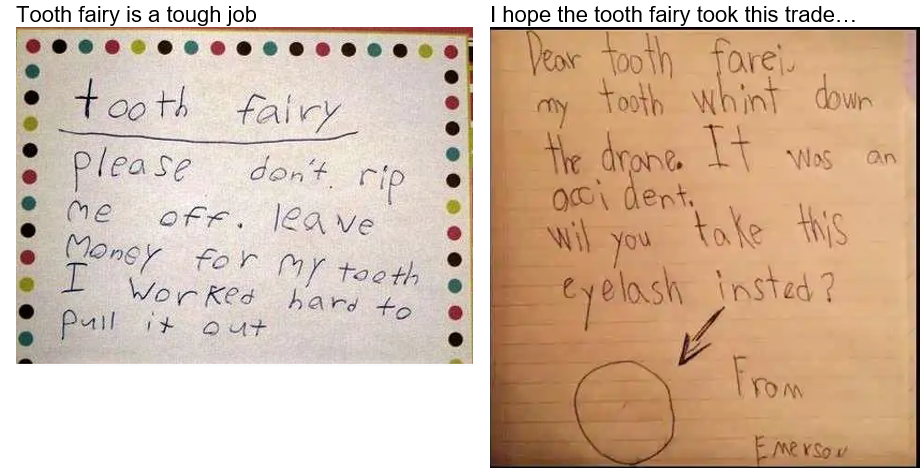 Tooth fairy is a tough job
tooth fairy
please don't rip
me off. leave
Money for my tooth
I worked hard to
pull it out
I hope the tooth fairy took this trade…
Dear tooth farei,
my tooth whint down
the drane. It was an
acci dent.
wil you take this
eyelash insted?
From
Emerson